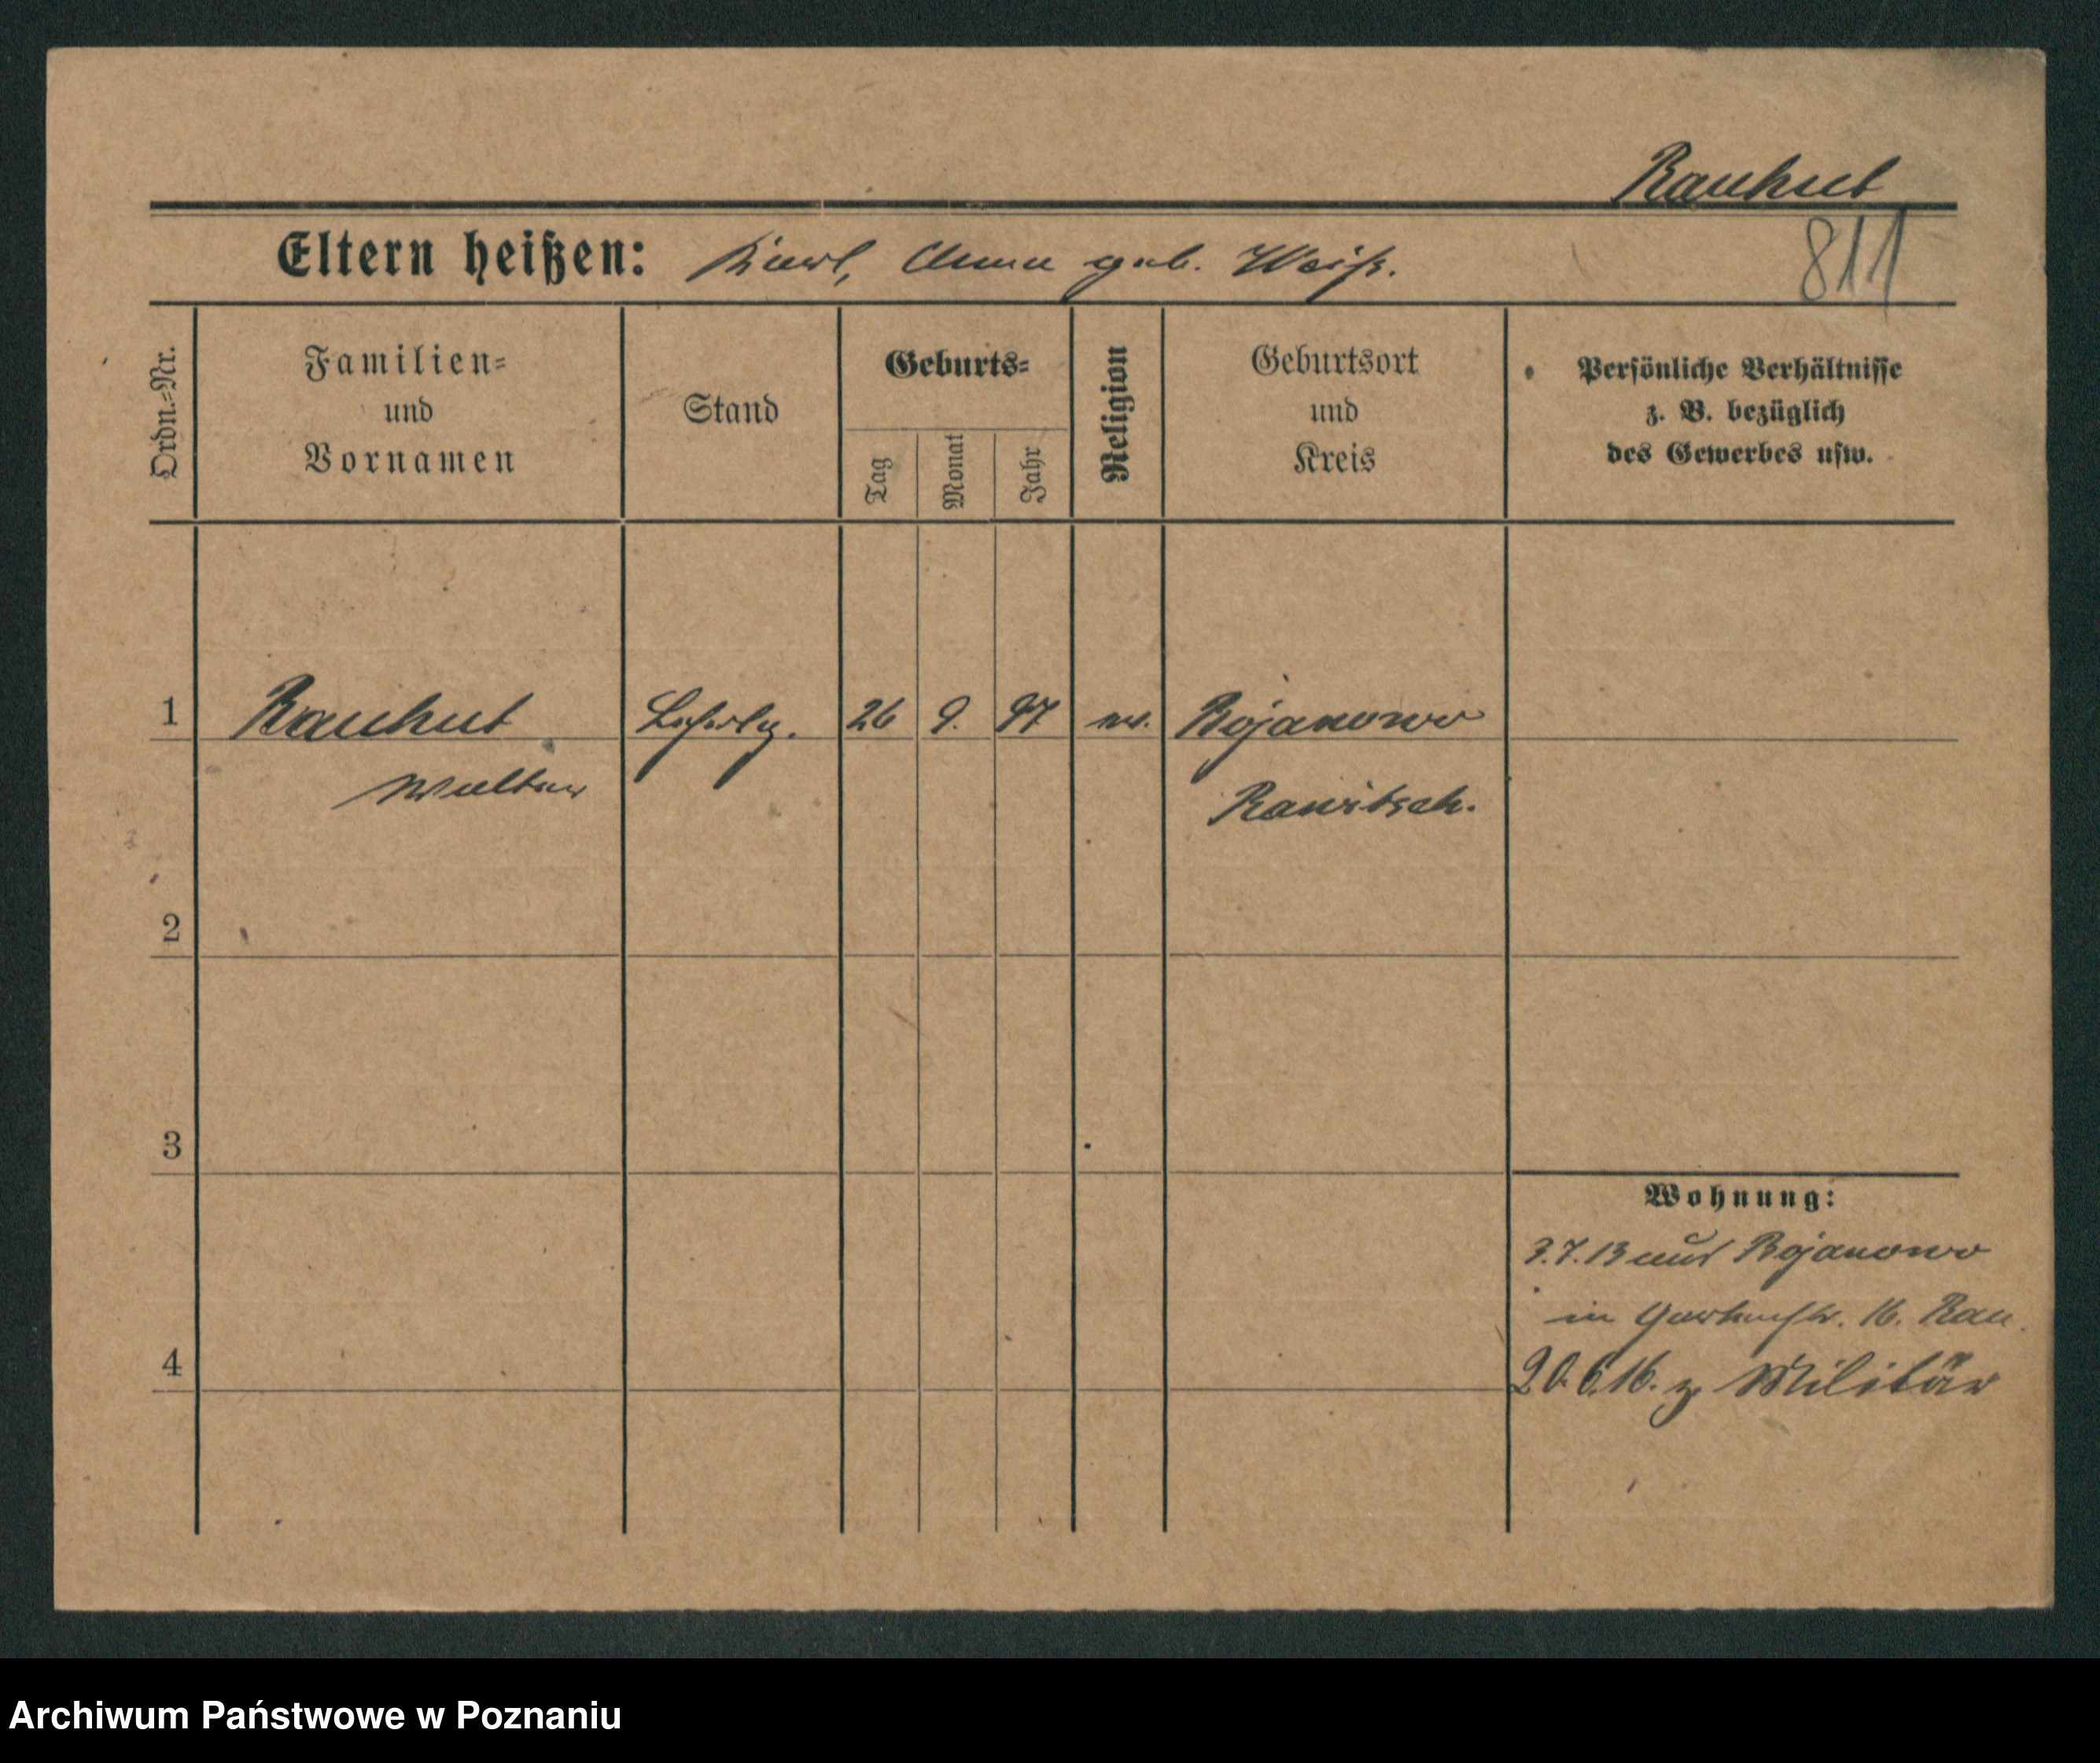 Rauhut
Eltern heißen: Karl, Anna geb. Weiß.
811
Ordn.=Nr.
Familien=
und
Vornamen
Stand
Geburts=
Tag
Monat
Jahr
Religion
Geburtsort
und
Kreis
Persönliche Verhältnisse
z. B. bezüglich
des Gewerbes usw.
1 Rauhut Lehrlg. 26 9. 97 ev. Bojanowo
Walter Rawitsch.
2
3
Wohnung:
3.7.13 aus Bojanowo
in Gartenstr. 16. Rau.
4
20.6.16. z. Militär
Archiwum Państwowe w Poznaniu